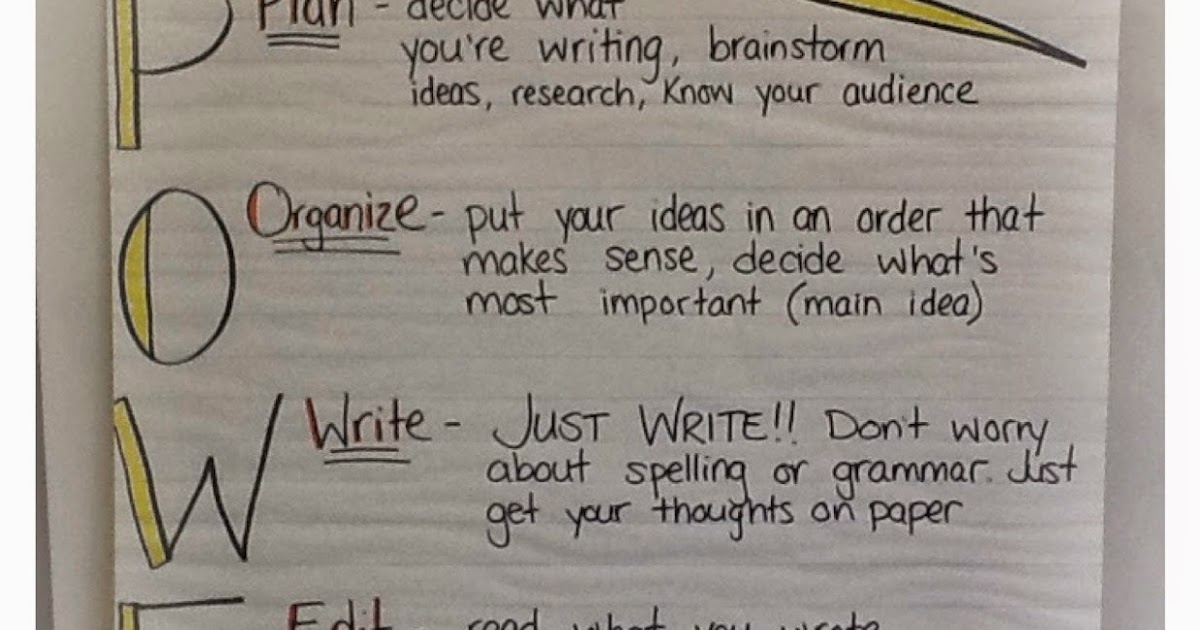 P Plan - decide what
you're writing, brainstorm
ideas, research, Know your audience
O Organize - put your ideas in an order that
makes sense, decide what's
most important (main idea)
W Write - JUST WRITE!! Don't worry
about spelling or grammar. Just
get your thoughts on paper
E Edit - read what you wrote